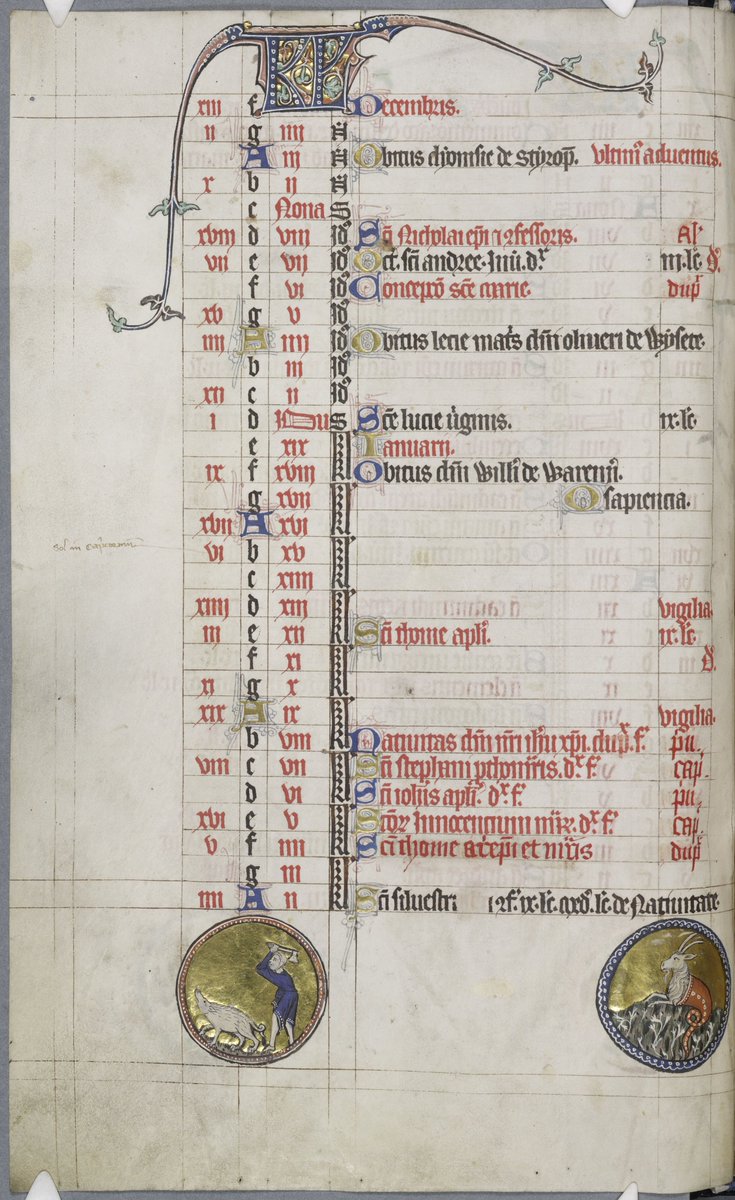 KL
xiii f Decembris.
ii g iiii N
A iii N Obitus dyonisie de Styrop̄. Vltim' aduentus.
x b ii N
c Nona S
xviii d viii Id' Sc̄i Nicholai ep̄i ⁊ ꝯfessoris.
vii e vii Id' Oct̄. sc̄i andree. dx̄ iii. lc̄.
f vi Id' Concepcō sc̄e marie. dup̄
xv g v Id'
iiii A iiii Id' Obitus lecie mat̄s dn̄i oliueri de Wysete.
b iii Id'
xii c ii Id'
i d Idus Sc̄e lucie ūginis. ix. lc̄.
e xix kl Ianuarii.
ix f xviii kl Obitus dn̄i will'i de Warenn̄.
g xvii kl O sapiencia.
xvii A xvi kl
vi b xv kl
sol in capricornū
c xiiii kl
xiiii d xiii kl vigilia.
iii e xii kl Sc̄i thome apl'i. ix. lc̄.
f xi kl
xi g x kl
xix A ix kl vigilia.
b viii kl Natiuitas dn̄i nr̄i ih̄u xp̄i. dupx̄. f'. pu.
viii c vii kl Sc̄i stephani ꝓthom̄ris. dx̄. f'. cap̄.
d vi kl Sc̄i ioh̄is apl'i. dx̄ f'. pu.
xvi e v kl Sc̄oꝝ Innocencium mr̄. dx̄. f'. cap̄.
v f iiii kl Sc̄i thome arc̄ep̄i et mr̄is dup̄
g iii kl
iiii A ii kl Sc̄i siluestri ⁊ ꝯf. ix. lc̄. lc̄. de Natiuitate.